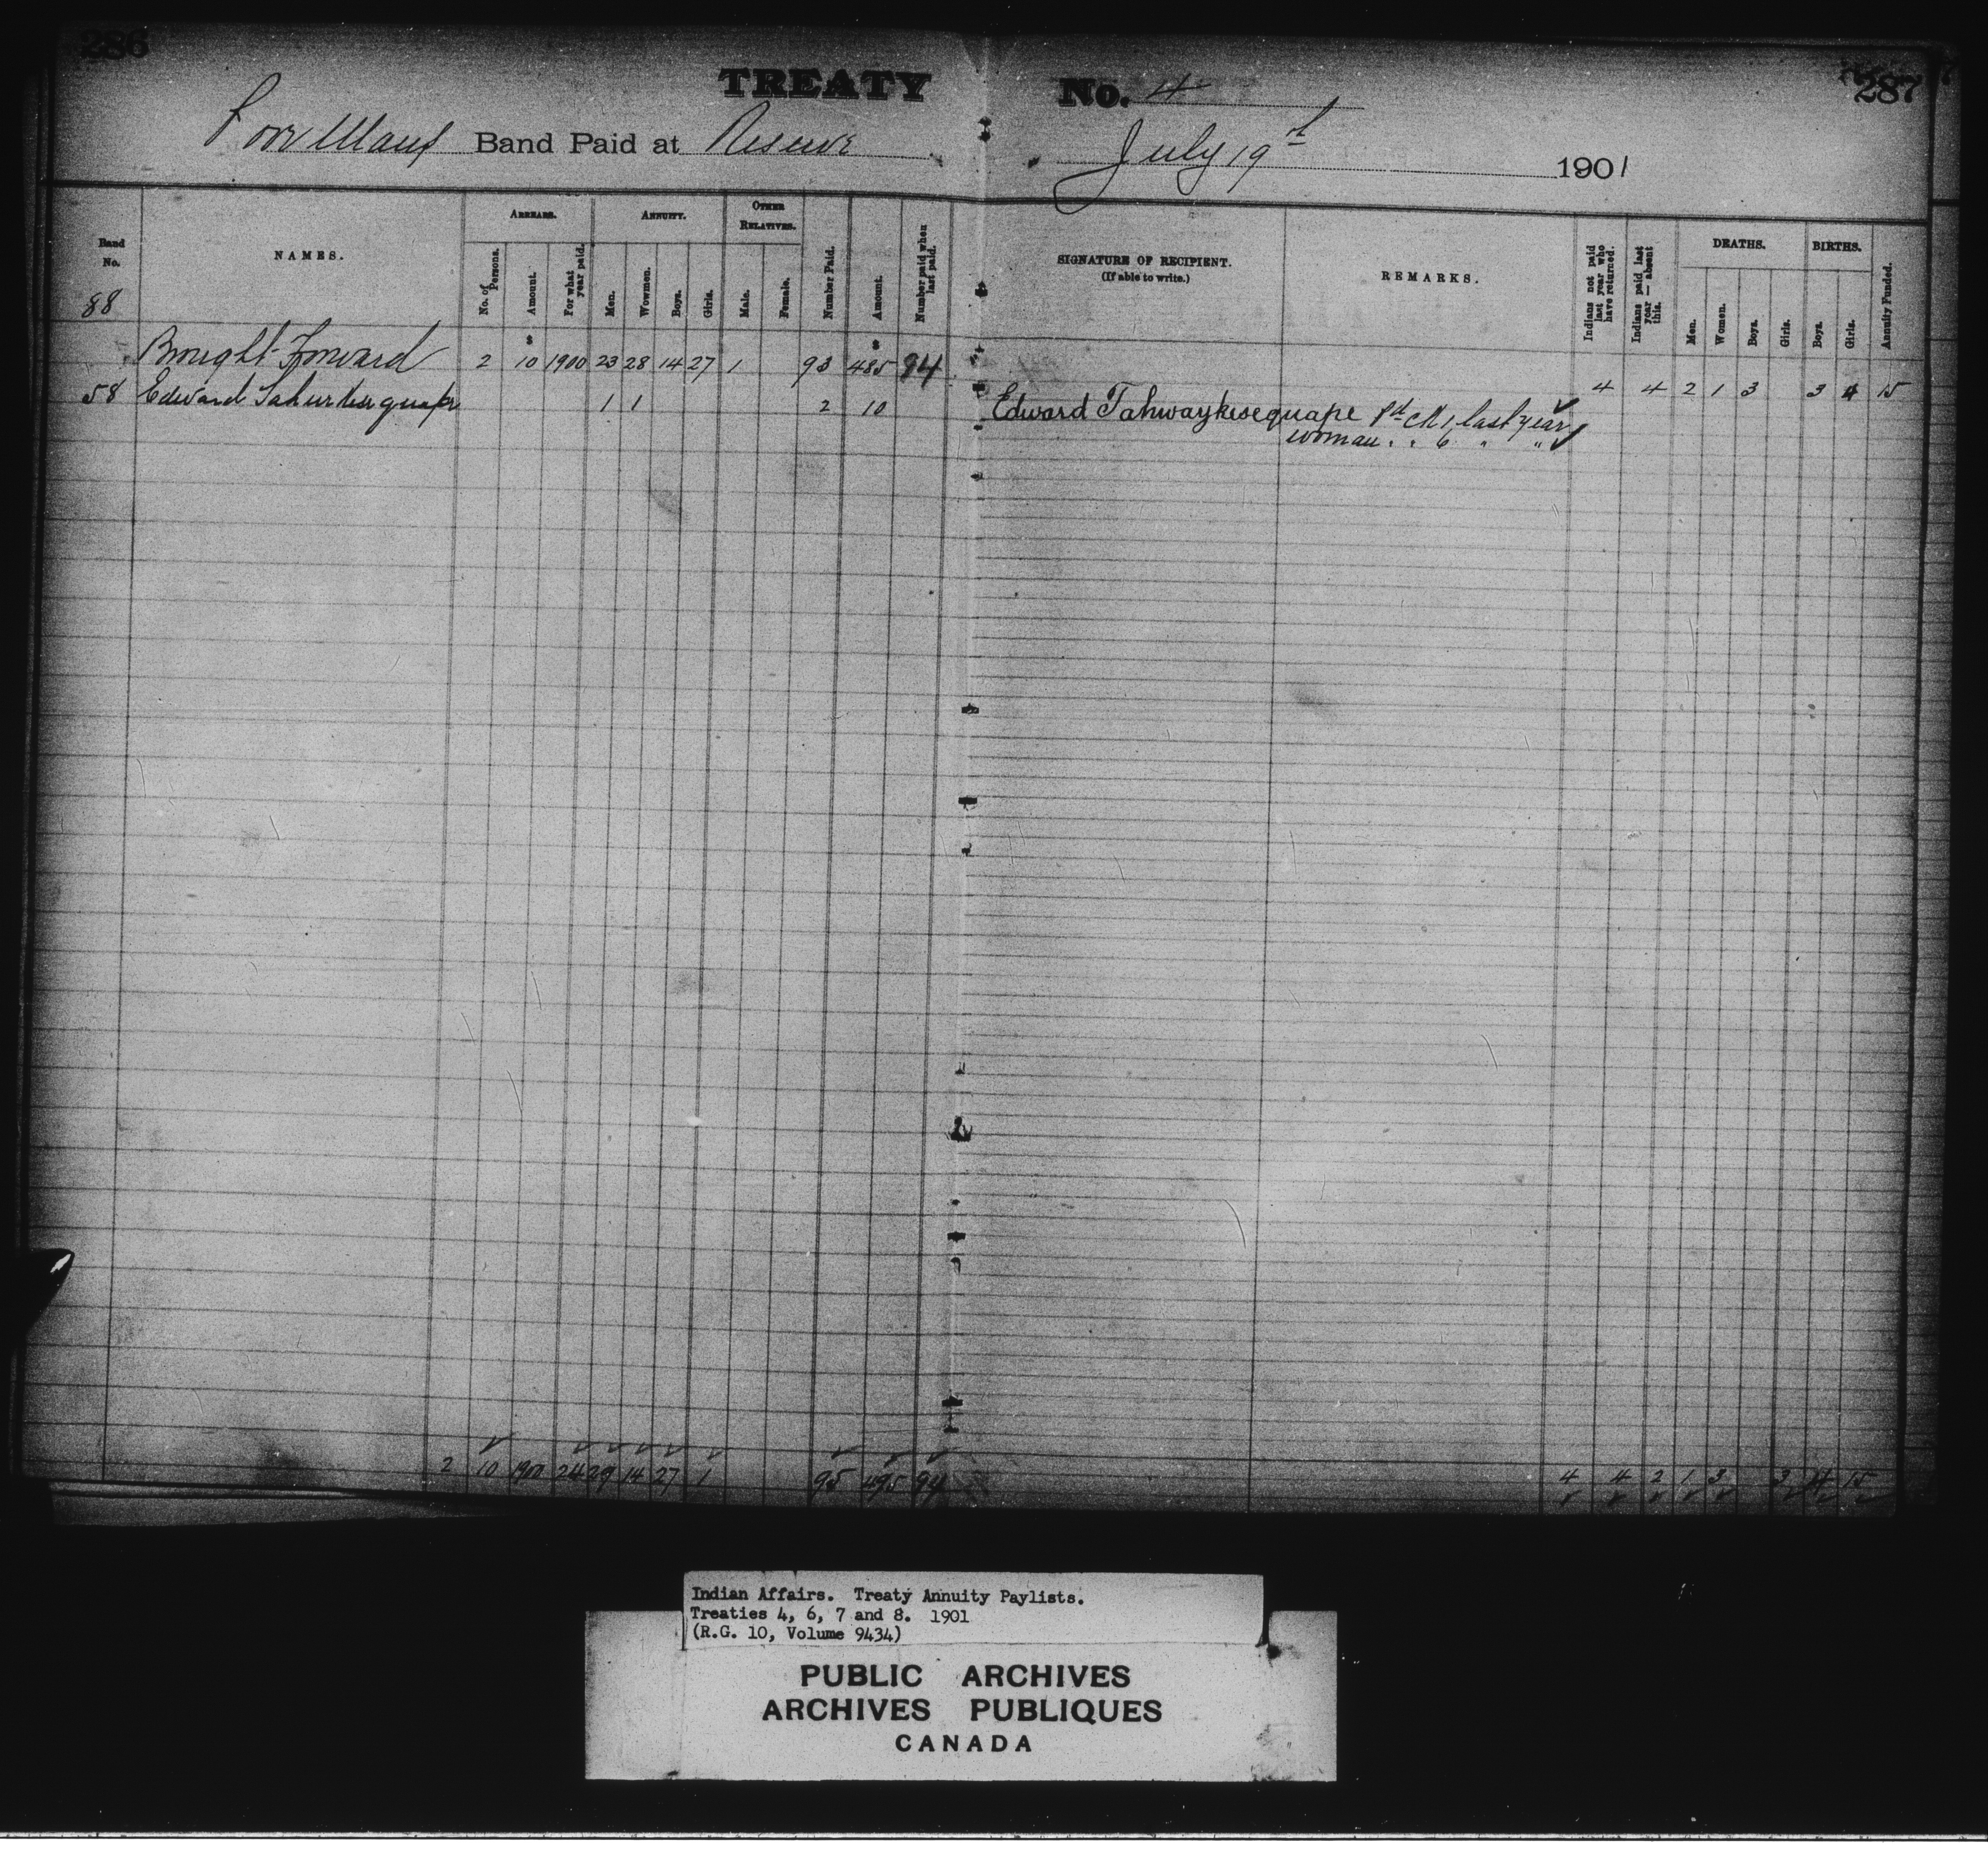 286
TREATY No. 4
287
Poor Mans Band Paid at Reserve July 19th 1901
Band No.
NAMES.
ARREARS.
No. of Persons.
Amount.
For what year paid.
ANNUITY.
Men.
Wowmen.
Boys.
Girls.
OTHER RELATIVES.
Male.
Female.
Number Paid.
Amount.
Number paid when last paid.
SIGNATURE OF RECIPIENT.
(If able to write.)
REMARKS.
Indians not paid last year who have returned.
Indians paid last year — absent this.
DEATHS.
Men.
Women.
Boys.
Girls.
BIRTHS.
Boys.
Girls.
Annuity Funded.
88
Brought Forward 2 $10 1900 23 28 14 27 1 93 $485 94 4 4 2 1 3 3 4 15
58 Edward 1 1 2 10 Edward Tahwaykesequape Pd ck 1, last year
woman " " 6 " "
2 10 1900 24 29 14 27 1 95 495 94 4 4 2 1 3 3 4 15
Indian Affairs. Treaty Annuity Paylists.
Treaties 4, 6, 7 and 8. 1901
(R.G. 10, Volume 9434)
PUBLIC ARCHIVES
ARCHIVES PUBLIQUES
CANADA